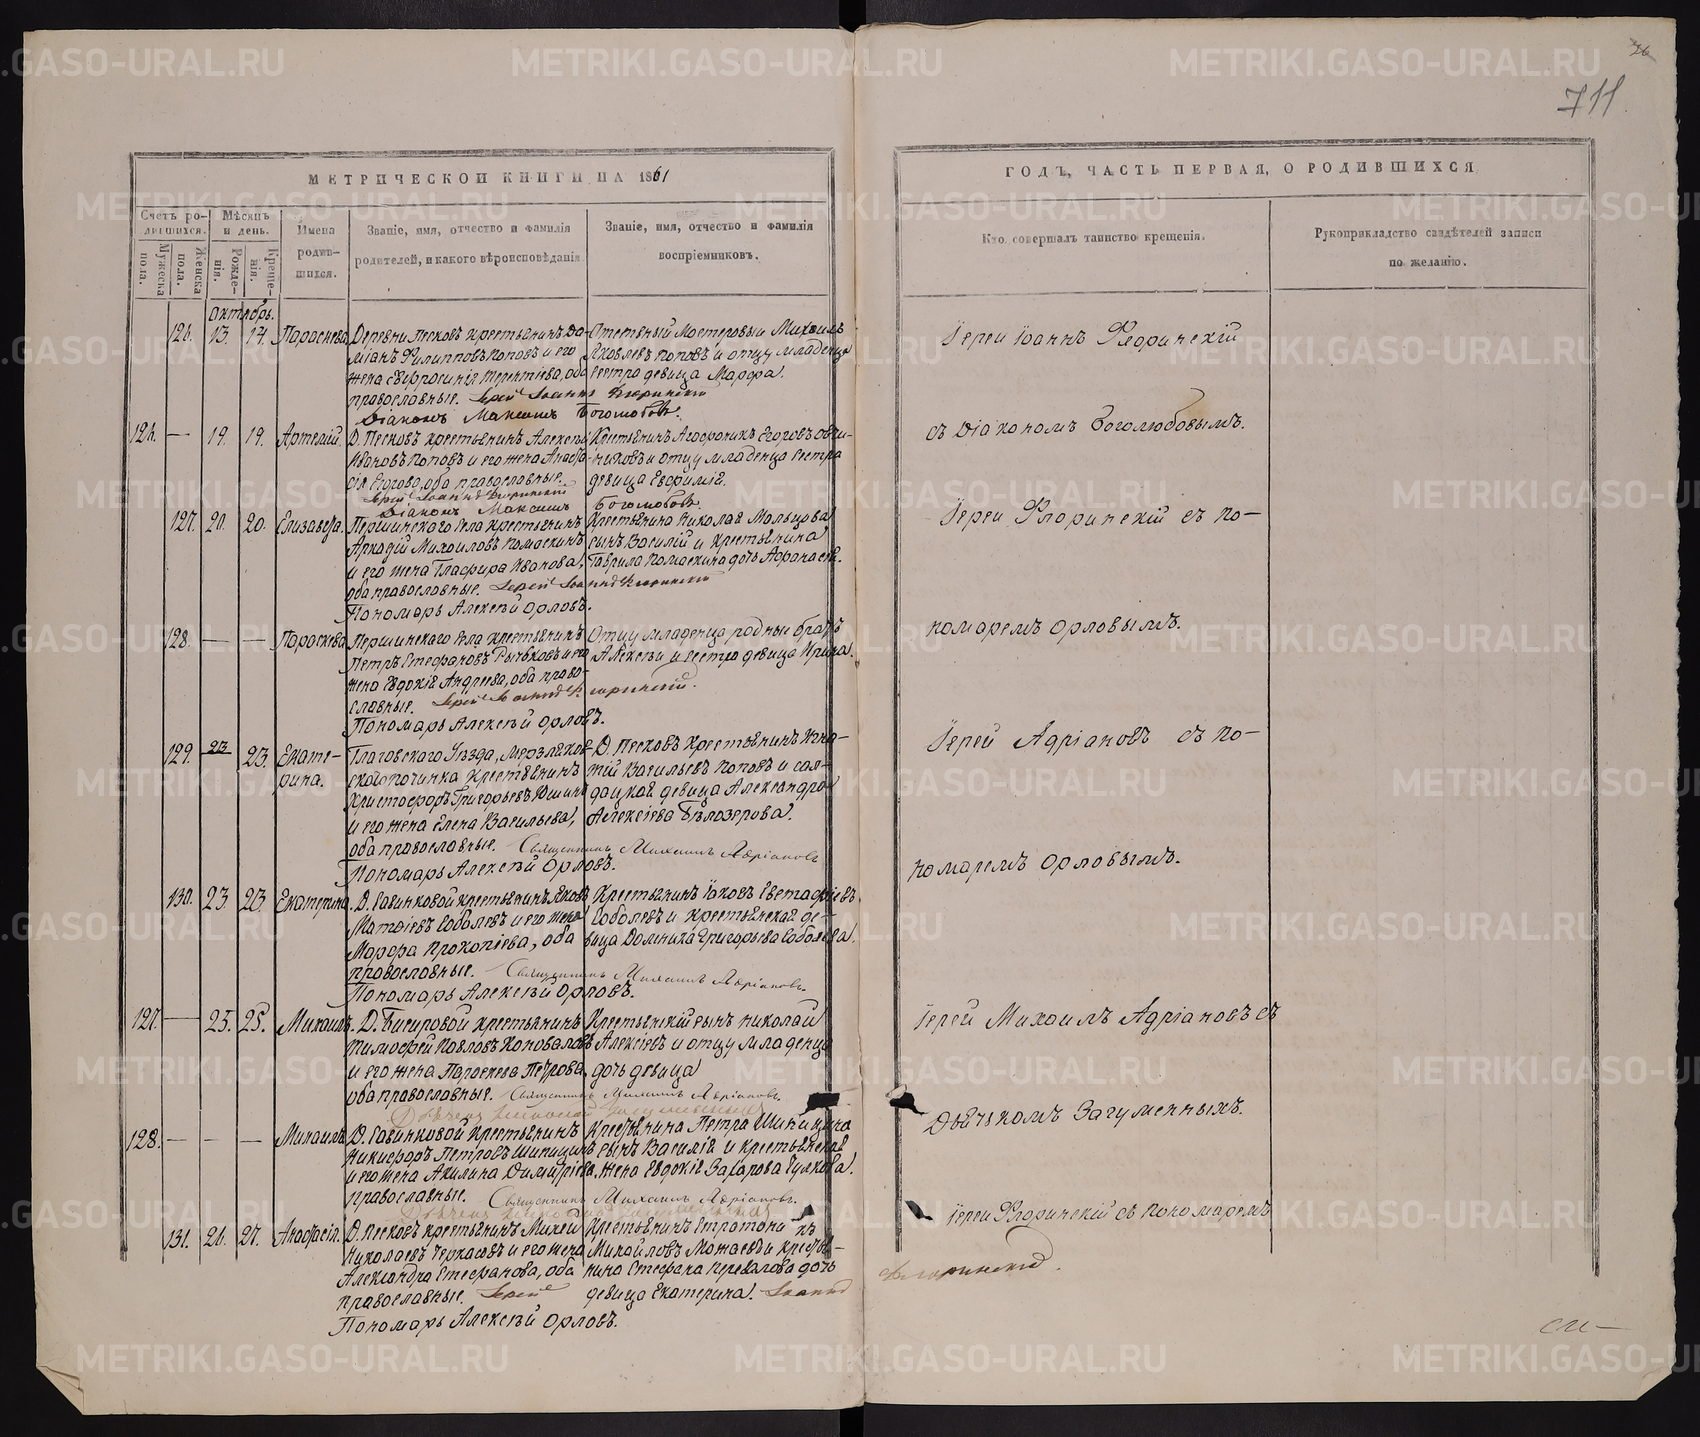 711
МЕТРИЧЕСКОЙ КНИГИ НА 1861
ГОДЪ, ЧАСТЬ ПЕРВАЯ, О РОДИВШИХСЯ
Счетъ родившихся.
Мужеска пола.
Женска пола.
Мѣсяцъ и день.
Рожденія.
Крещенія.
Имена родившихся.
Званіе, имя, отчество и фамилія
родителей, и какого вѣроисповѣданія
Званіе, имя, отчество и фамилія
воспріемниковъ.
Кто совершалъ таинство крещенія.
Рукоприкладство свидѣтелей записи
по желанію.
Октябрь.
13. 14. Параскева
Деревни Песковъ крестьянинъ Да-
міанъ Филипповъ Поповъ и его
жена Евфросинія Терентіева, оба
православные. Іерей Іоаннъ Флоринскій
Діаконъ Максимъ Боголюбовъ.
Мастеровый Михаилъ
Яковлевъ Поповъ и отцу младенца
сестра девица Марфа.
Іерей Іоаннъ Флоринскій
съ Діакономъ Боголюбовымъ.
— 19. 19. Артемій.
Д. Песковъ крестьянинъ Алексѣй
Ивановъ Поповъ и его жена Анаста-
сія Егорова, оба православные.
Іерей Іоаннъ Флоринскій
Діаконъ Максимъ Боголюбовъ
Крестьянинъ Агафоникъ Егоровъ Овчи-
никовъ и отцу младенца сестра
девица Евфимія.
127. 20. Елизавета.
Першинскаго села крестьянинъ
Аркадій Михаиловъ Помаскинъ
и его жена Глафира Иванова,
оба православные. Іерей Іоаннъ Флоринскій
Пономарь Алексѣй Орловъ.
Крестьянина Николая Мальцова
сынъ Василій и крестьянина
Гаврила Помаскина дочь
Іерей Флоринскій съ по-
номаремъ Орловымъ.
128 — — Параскева
Першинскаго села крестьянинъ
Петръ Стефановъ и его
жена Евдокія Андреева, оба право-
славные. Іерей Іоаннъ Флоринскій.
Пономарь Алексѣй Орловъ.
Отцу младенца родные братъ
Алексѣй и сестра девица Ирина.
129. 23 23. Екате-
рина.
Глазовскаго Уѣзда,
починка крестьянинъ
Христофоръ Григорьевъ Юшинъ
и его жена Елена Васильева,
оба православные. Священникъ Михаилъ Адріановъ
Пономарь Алексѣй Орловъ.
Д. Песковъ крестьянинъ Игна-
тій Васильевъ Поповъ и сол-
дацкая девица Александра
Алексіева Бѣлозерова.
Іерей Адріановъ съ по-
номаремъ Орловымъ.
130. 23. 23. Екатерина.
Д. Савинковой крестьянинъ Яковъ
Матѳіевъ Соболевъ и его жена
Марфа Прокопіева, оба
православные. Священникъ Михаилъ Адріановъ
Пономарь Алексѣй Орловъ.
Крестьянинъ Іаковъ Евстафіевъ
Соболевъ и крестьянская де-
вица Домника Григорьева Соболева.
127. — 25. 25. Михаилъ.
Д. Бисеровой крестьянинъ
Тимофей Павловъ Коноваловъ
и его жена Параскева Петрова,
оба православные. Священникъ Михаилъ Адріановъ.
Крестьянскій сынъ Николай
Алексіевъ и отцу младенца
дочь девица
Іерей Михаилъ Адріановъ съ
Дьячкомъ Загуменныхъ.
128. — — — Михаилъ
Д. Савинковой крестьянинъ
Никифоръ Петровъ Шипицинъ
и его жена Акилина Димитріева,
православные. Священникъ Михаилъ Адріановъ.
Крестьянина Петра Шипицина
сынъ Василій и крестьянская
жена Евдокія Захарова Гулкова.
131. 21. 27. Анастасія.
Д. Песковъ крестьянинъ Михей
Николаевъ Черкасовъ и его жена
Александра Стефанова, оба
православные. Іерей
Пономарь Алексѣй Орловъ.
Крестьянинъ
Михайловъ Можаевъ и кресть-
нина Стефана Перевалова дочь
девица Екатерина. Іоаннъ
Флоринскій.
Іерей Флоринскій съ пономаремъ
METRIKI.GASO-URAL.RU